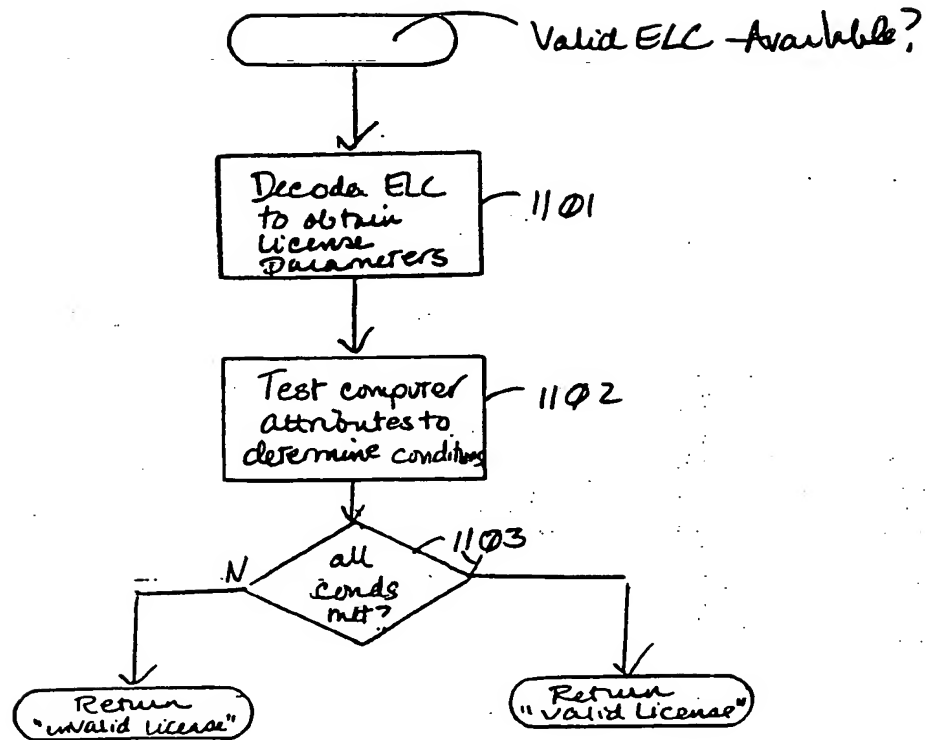 Valid ELC Available?
Decode ELC
to obtain
License
Parameters
11Ø1
Test computer
attributes to
determine conditions
11Ø2
11Ø3
Y
N
all
conds
met?
Return
"invalid License"
Return
"valid License"